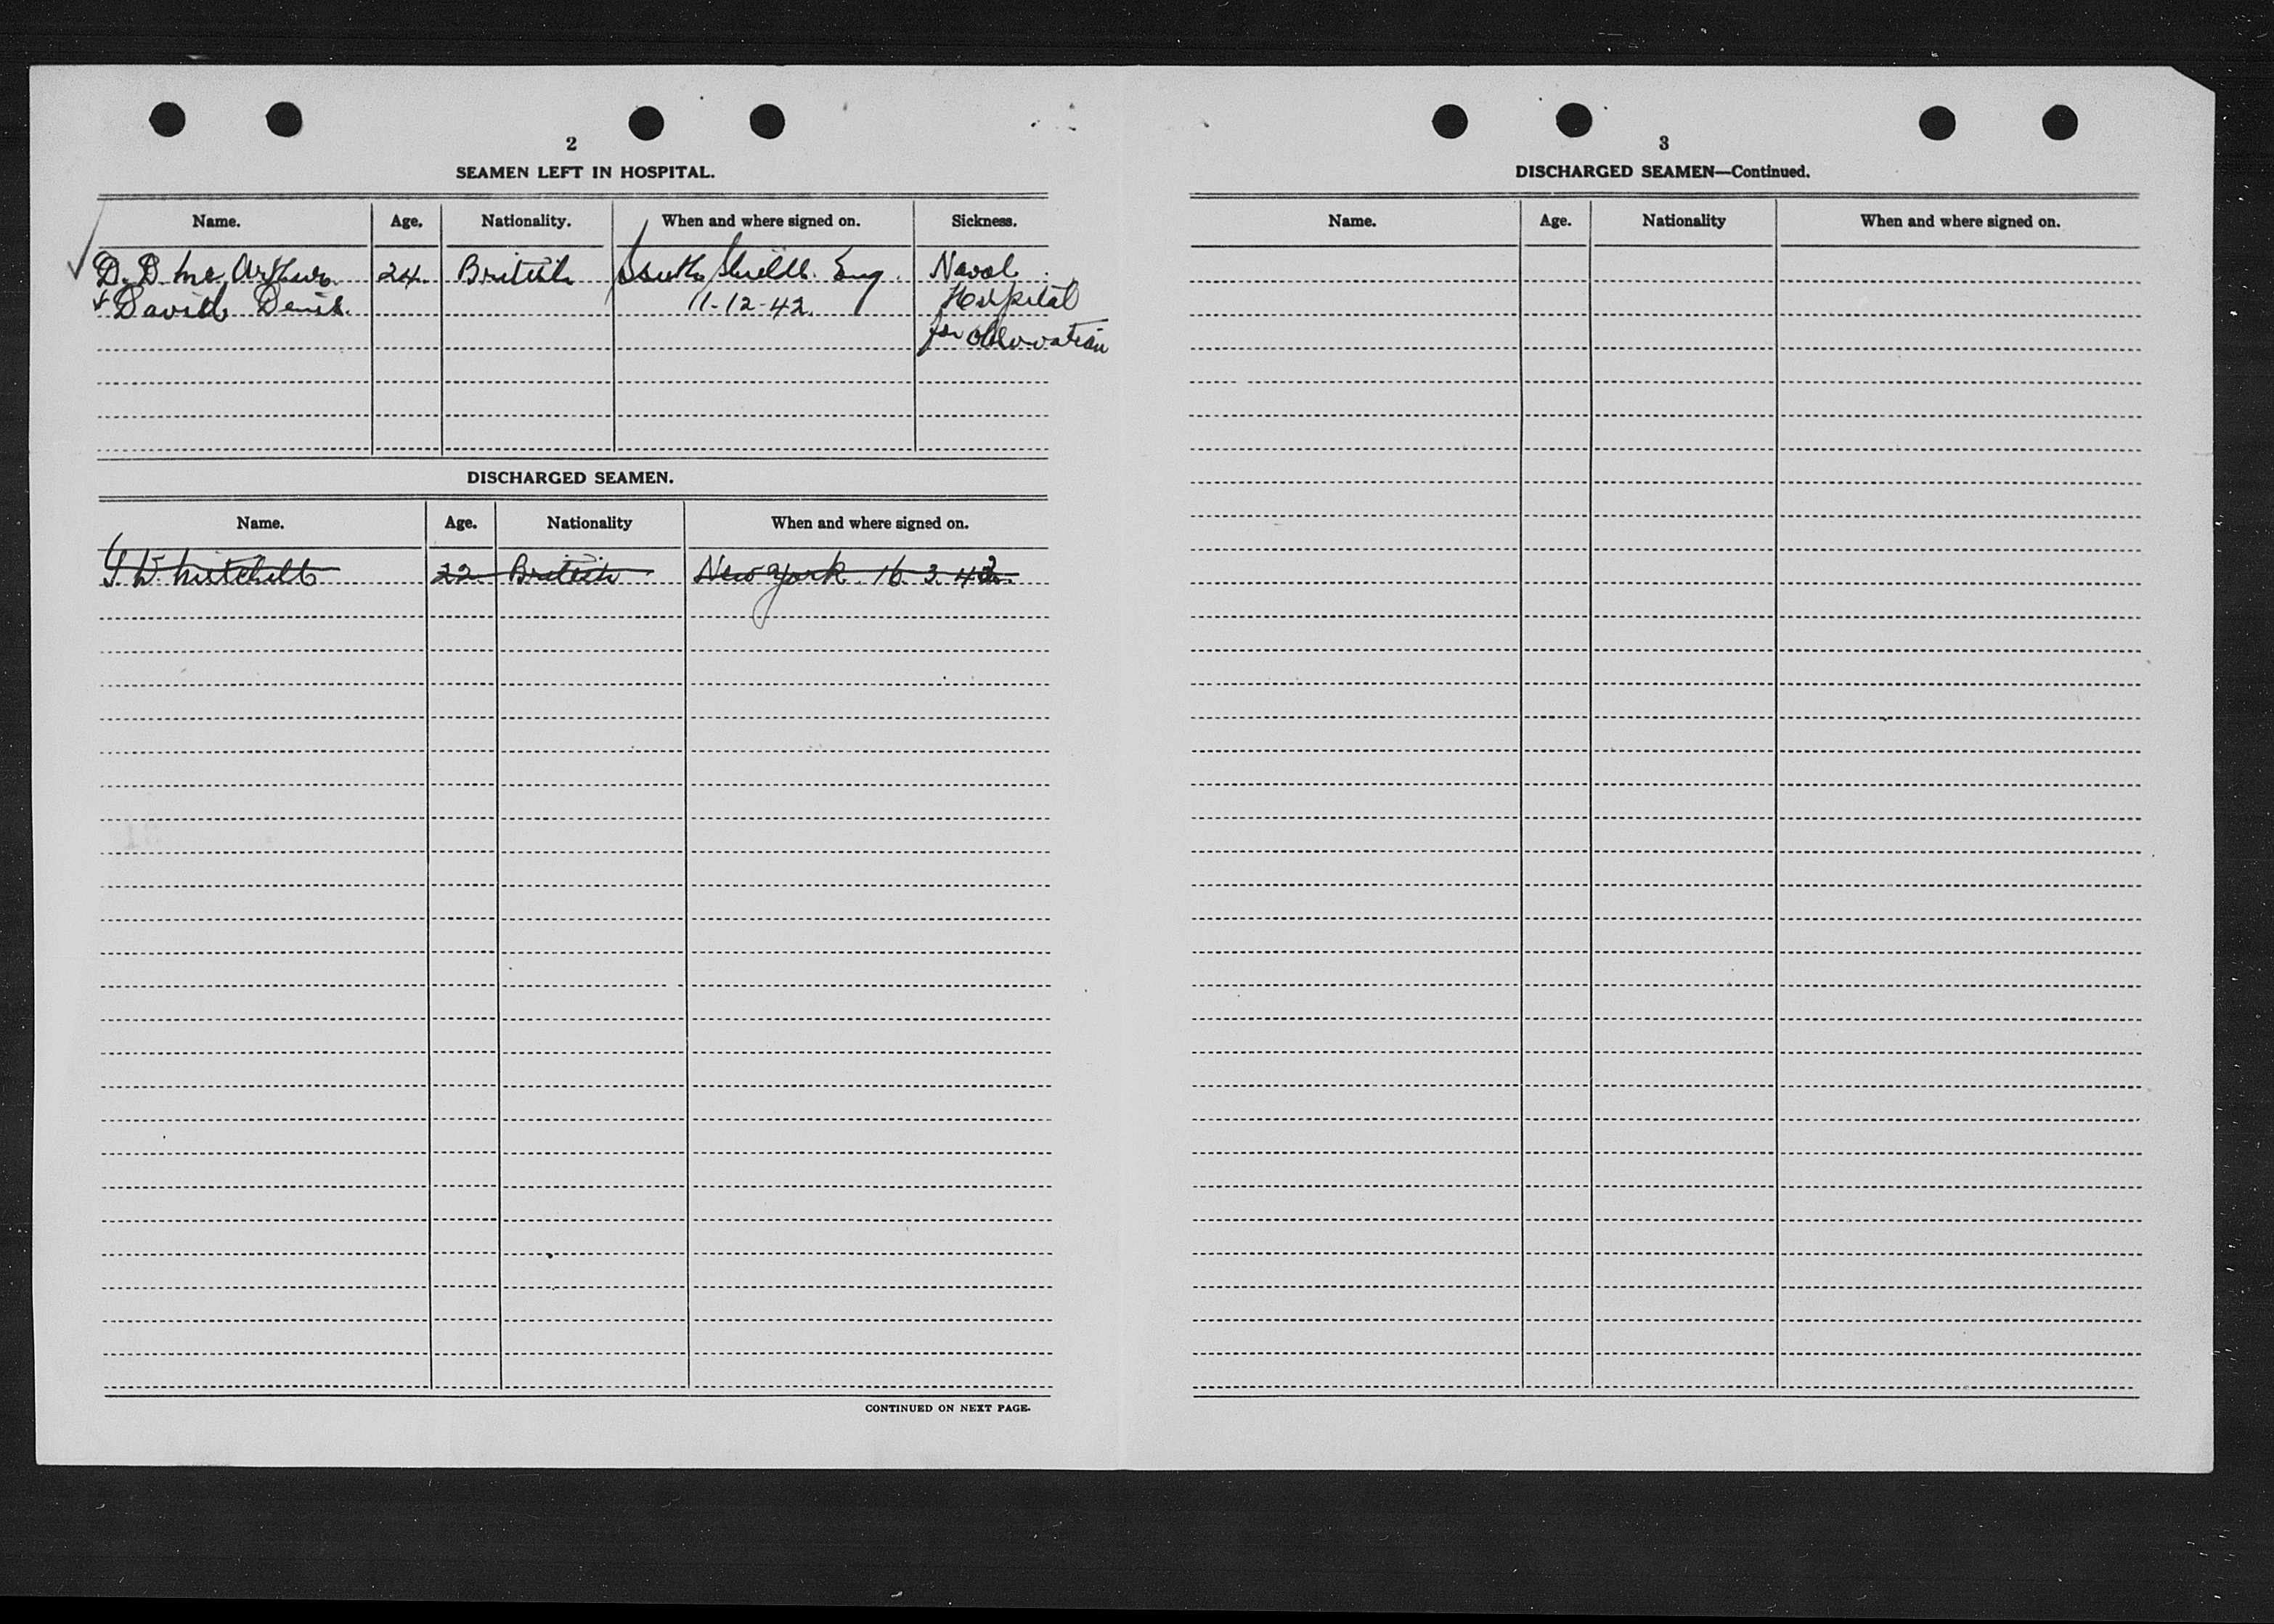 2
SEAMEN LEFT IN HOSPITAL.
Name. Age. Nationality. When and where signed on. Sickness.
D. D. Mc Arthur 24 British South Shields. Eng. Naval
David Denis. 11-12-42. Hospital
for observation
DISCHARGED SEAMEN.
Name. Age. Nationality When and where signed on.
Mitchell 22 British New York 16.3.43
CONTINUED ON NEXT PAGE.
3
DISCHARGED SEAMEN—Continued.
Name. Age. Nationality When and where signed on.